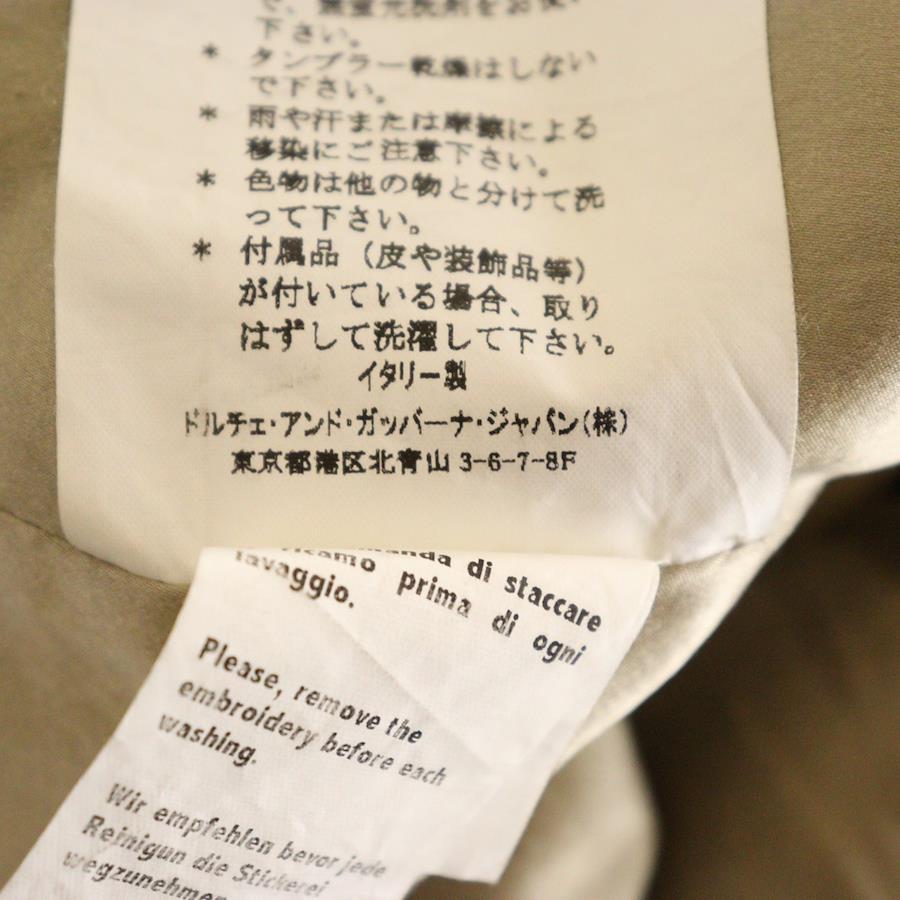 で、無蛍光洗剤をお使い
下さい。
* タンブラー乾燥はしない
で下さい。
* 雨や汗または摩擦による
移染にご注意下さい。
* 色物は他の物と分けて洗
って下さい。
* 付属品（皮や装飾品等）
が付いている場合、取り
はずして洗濯して下さい。
イタリー製
ドルチェ・アンド・ガッバーナ・ジャパン(株)
東京都港区北青山 3-6-7-8F
di staccare
prima di ogni
lavaggio.
Please, remove the
embroidery before each
washing.
Wir empfehlen bevor jede
Reinigun die Stickerei
wegzunehmen